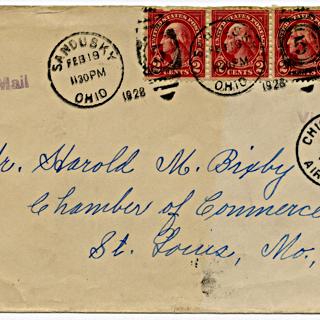 UNITED STATES POSTAGE
SANDUSKY
FEB 19
11 30 PM
OHIO
1928
2 CENTS 2
OHIO
1928
5
Mail
CHI
AIR
r. Harold M. Bixby
Chamber of Commerce
St. Louis, Mo,